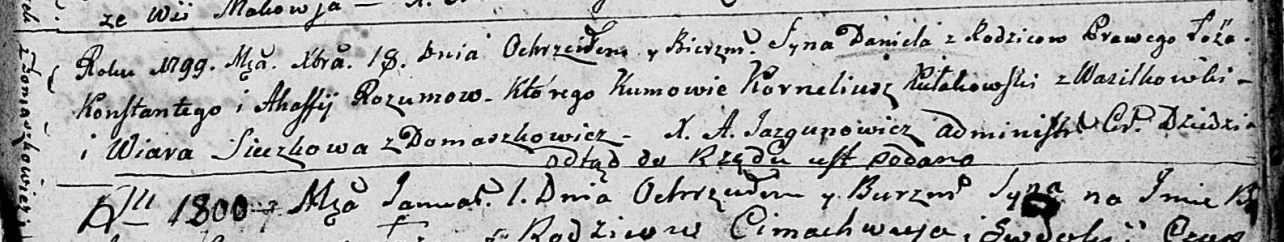 ze Wsi Makowja — X.
Roku 1799. Mça. Xbra. 18. Dnia Ochrzciłem y Bierzm. Syna Daniela z Rodzicow Prawego Łoża.
Konstantego i Ahafiij Rozumow. Którego Kumowie Korneliusz Kułakowski z Wasilkowki -
i Wiara Siuzkowa z Domaszkowicz - X. A. Jazgunowicz administ. Cr. Dziedzi
odtąd do Rządu est podano
A 1800 Mça Januar. 1. Dnia Ochrzciłem y Burzm Syna na Imie
z Rodzicow Cimachwieja i